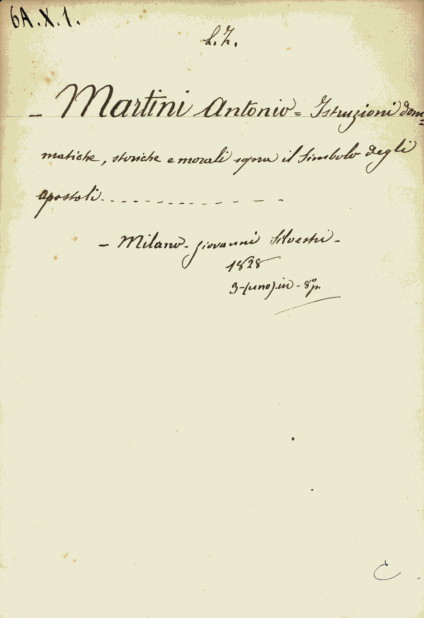 6A.X.1.
L.Z.
- Martini Antonio = Istruzioni dom=
matiche, storiche e morali sopra il Simbolo degli
apostoli. - - - - - - - - - - -
- Milano - Giovanni Silvestri -
1828
3 - (uno) in - 8º p.
C